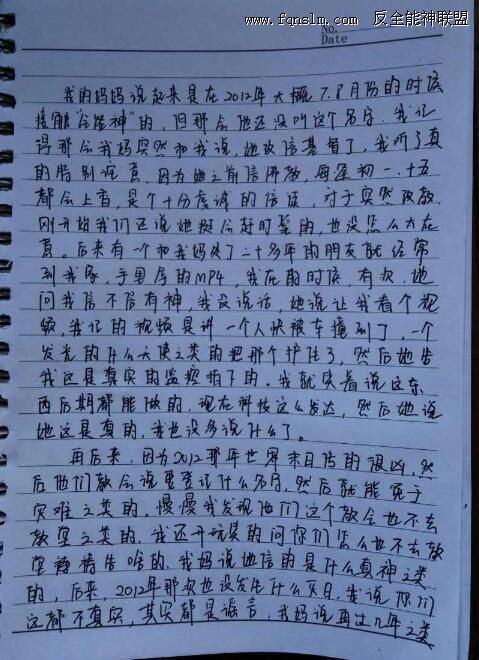 www.fqnslm.com 反全能神联盟
No.
Date
我的妈妈说起来是在2012年大概7.8月份的时候
接触“全能神”的,但那会他还没听这个名字,我记
得那会我妈突然和我说,她改信基督了,我听了真
的特别诧异,因为她之前信佛教,每逢初一、十五
都会上香,是个十分虔诚的信徒,对于突然改教,
刚开始我们还说她挺会赶时髦的,也没怎么太在
意。后来有一个和我妈处了二十多年的朋友就经常
到我家,手里拿的MP4,我在的时候,有次,她
问我信不信有神,我没说话,她说让我看个视
频,我记的视频是讲一个人快被车撞到了,一个
发光的什么天使之类的把那个护住了,然后她告
我这是真实的监控拍下的。我就笑着说这东
西后期都能做的,现在科技这么发达,然后她说
她这是真的,我也没多说什么了。
再后来,因为2012那年世界末日传的很凶,然
后他们教会说要登记什么名册,然后就能免于
灾难之类的,慢慢我发现他们这个教会也不去
教堂之类的,我还开玩笑的问你们怎么也不去教
堂祷告啥的,我妈说她信的是什么真神之类
的,后来,2012年那次也没发生什么灭日,我说你们
这都不真实,其实都是谣言,我妈说再过几年之类